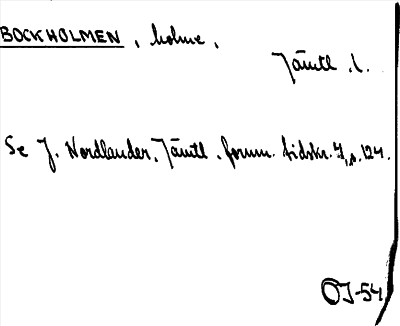 BOCKHOLMEN, holme,
Jämtl. l.
Se J. Nordlander, Jämtl. fornm. tidskr. 7, s. 124.
OJ-54